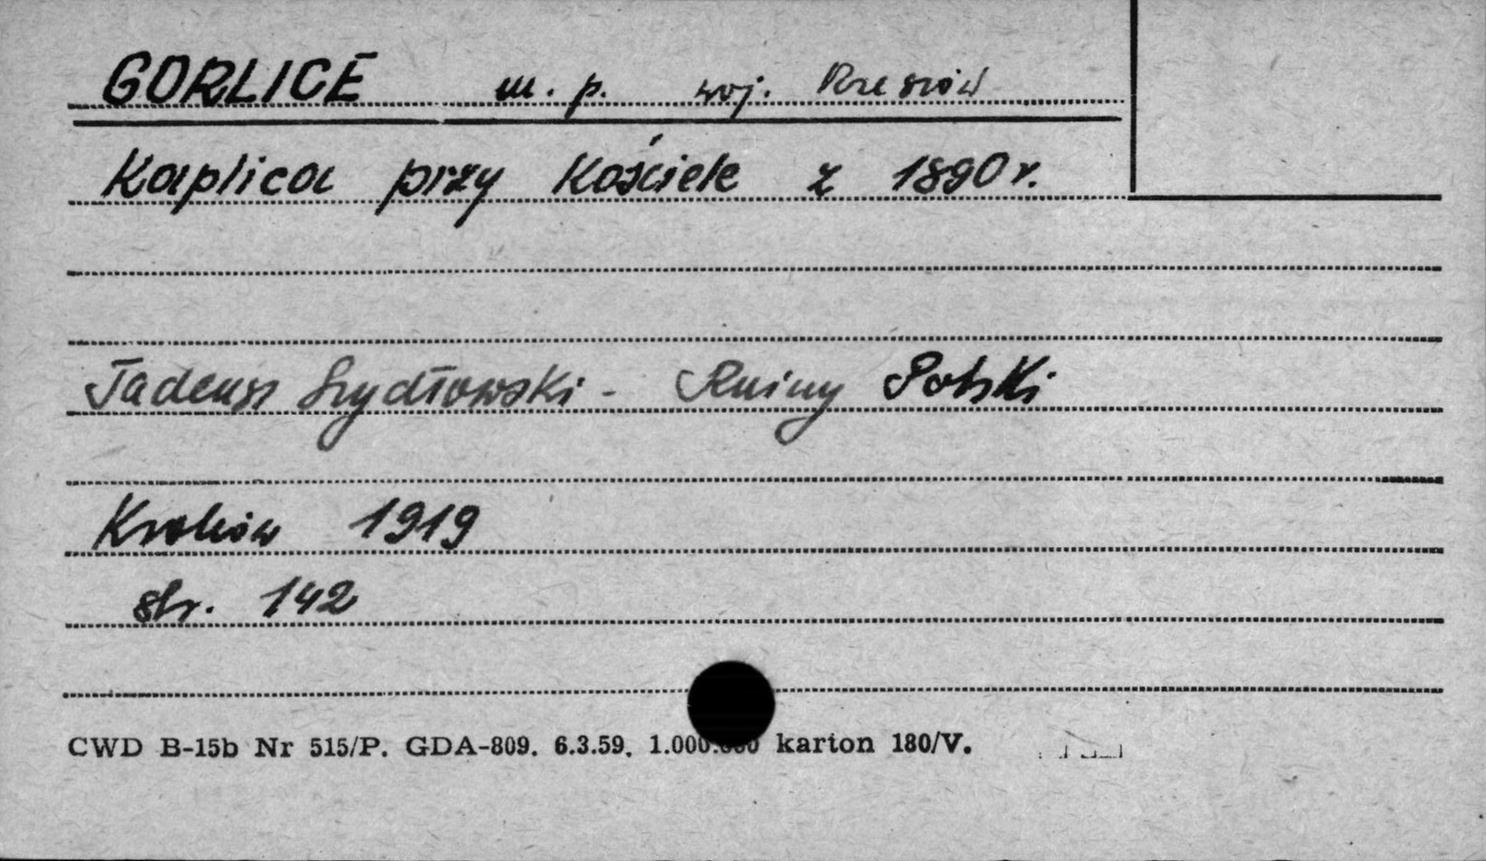 GORLICE m. p. woj. Rzeszów
Kaplica przy Kościele z 1890 r.
Tadeusz Szydłowski - Ruiny Polski
Kraków 1919
str. 142
CWD B-15b Nr 515/P. GDA-809. 6.3.59. 1.000.000 karton 180/V.